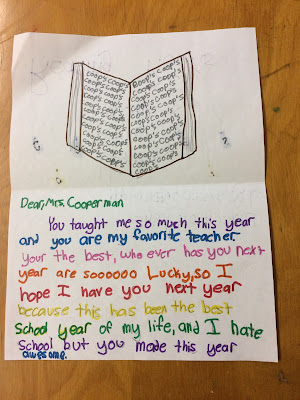 Coop's Coop's Coop's Coop's
Coop's Coop's Coop's Coop's
Coop's Coop's Coop's Coop's
Coop's Coop's Coop's Coop's
Coop's Coop's Coop's Coop's
Coop's Coop's Coop's Coop's
Coop's Coop's Coop's Coop's
Coop's Coop's Coop's Coop's
Coop's Coop's Coop's Coop's
Coop's Coop's Coop's Coop's
Dear, Mrs. Cooperman
You taught me so much this year
and you are my favorite teacher.
your the best, who ever has you next
year are soooooo Lucky, so I
hope I have you next year
because this has been the best
School year of my life, and I hate
School but you made this year
awesome.